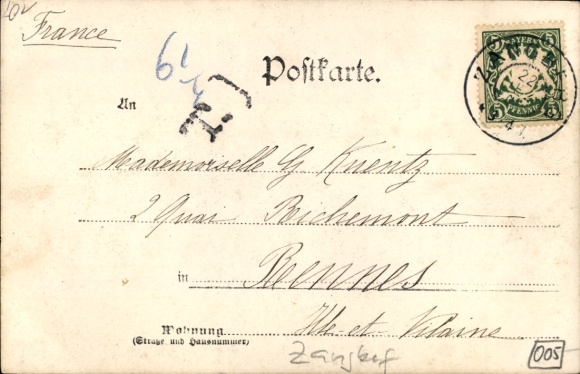 France
Postkarte.
An
T
Mademoiselle G Kuentz
2 Quai Richemont
in Rennes
Wohnung
(Straße und Hausnummer)
Ille-et-Vilaine
Zangberg
005
5 BAYERN 5
5 PFENNIG 5